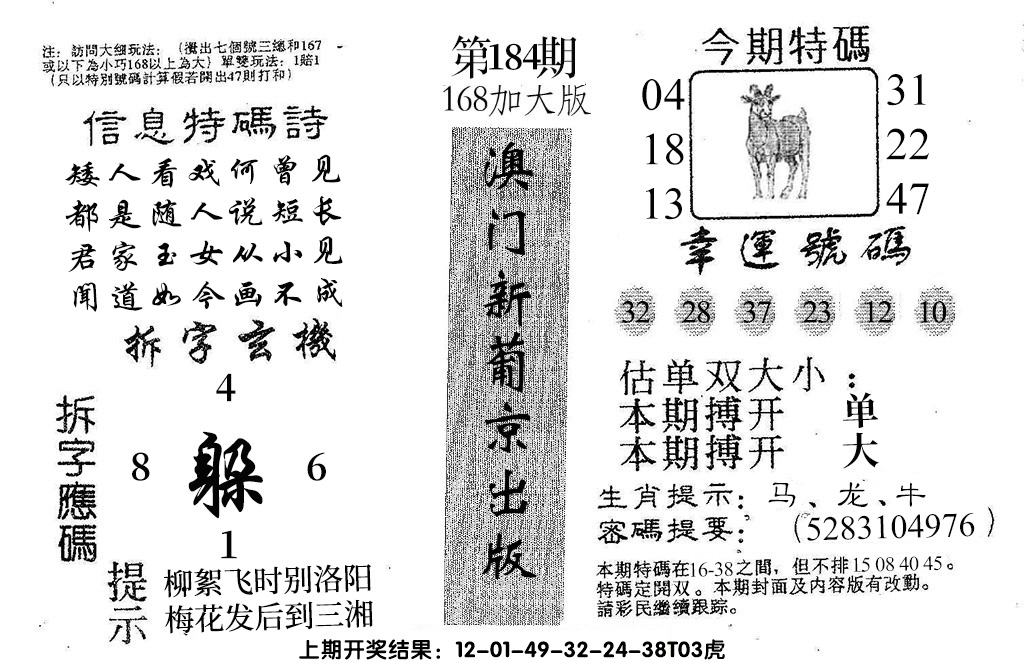 注：訪問大细玩法：（攪出七個號三總和167
或以下為小巧168以上為大）單雙玩法：1賠1
（只以特別號碼計算假若開出47則打和）
信息特碼詩
矮人看戏何曾见
都是随人说短长
君家玉女从小见
聞道如今画不成
拆字玄機
拆字應碼
4
8 躲 6
1
提示
柳絮飞时别洛阳
梅花发后到三湘
第184期
168加大版
澳门新葡京出版
今期特碼
04 31
18 22
13 47
幸運號碼
32 28 37 23 12 10
估单双大小：
本期搏开 单
本期搏开 大
生肖提示：马、龙、牛
密碼提要：（5283104976）
本期特碼在16-38之間，但不排15 08 40 45。
特碼定開双。本期封面及内容版有改動。
請彩民繼續跟踪。
上期开奖结果：12-01-49-32-24-38T03虎